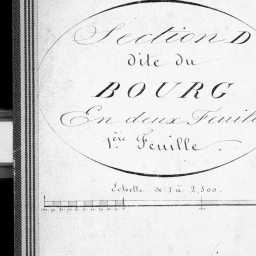 Section D
dite du
BOURG
En deux Feuill
1.ère Feuille.
Echelle de 1 à 2,500.